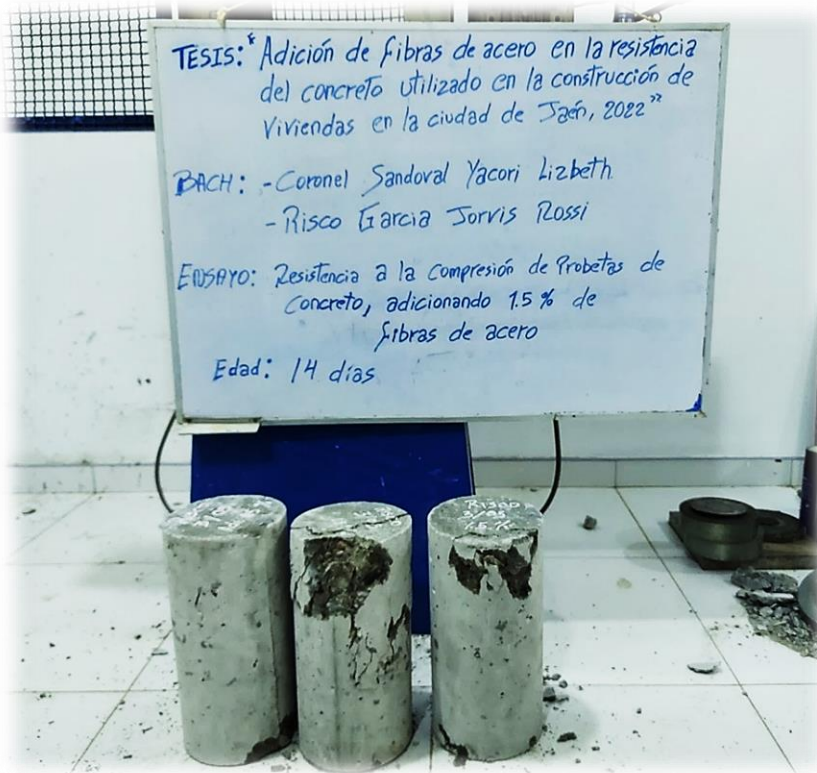 TESIS: "Adición de fibras de acero en la resistencia
del concreto utilizado en la construcción de
Viviendas en la ciudad de Jaén, 2022"
BACH: - Coronel Sandoval Yacori Lizbeth
- Risco Garcia Jorvis Rossi
ENSAYO: Resistencia a la compresión de Probetas de
Concreto, adicionando 1.5 % de
fibras de acero
Edad: 14 días
RISCO
1.5 %